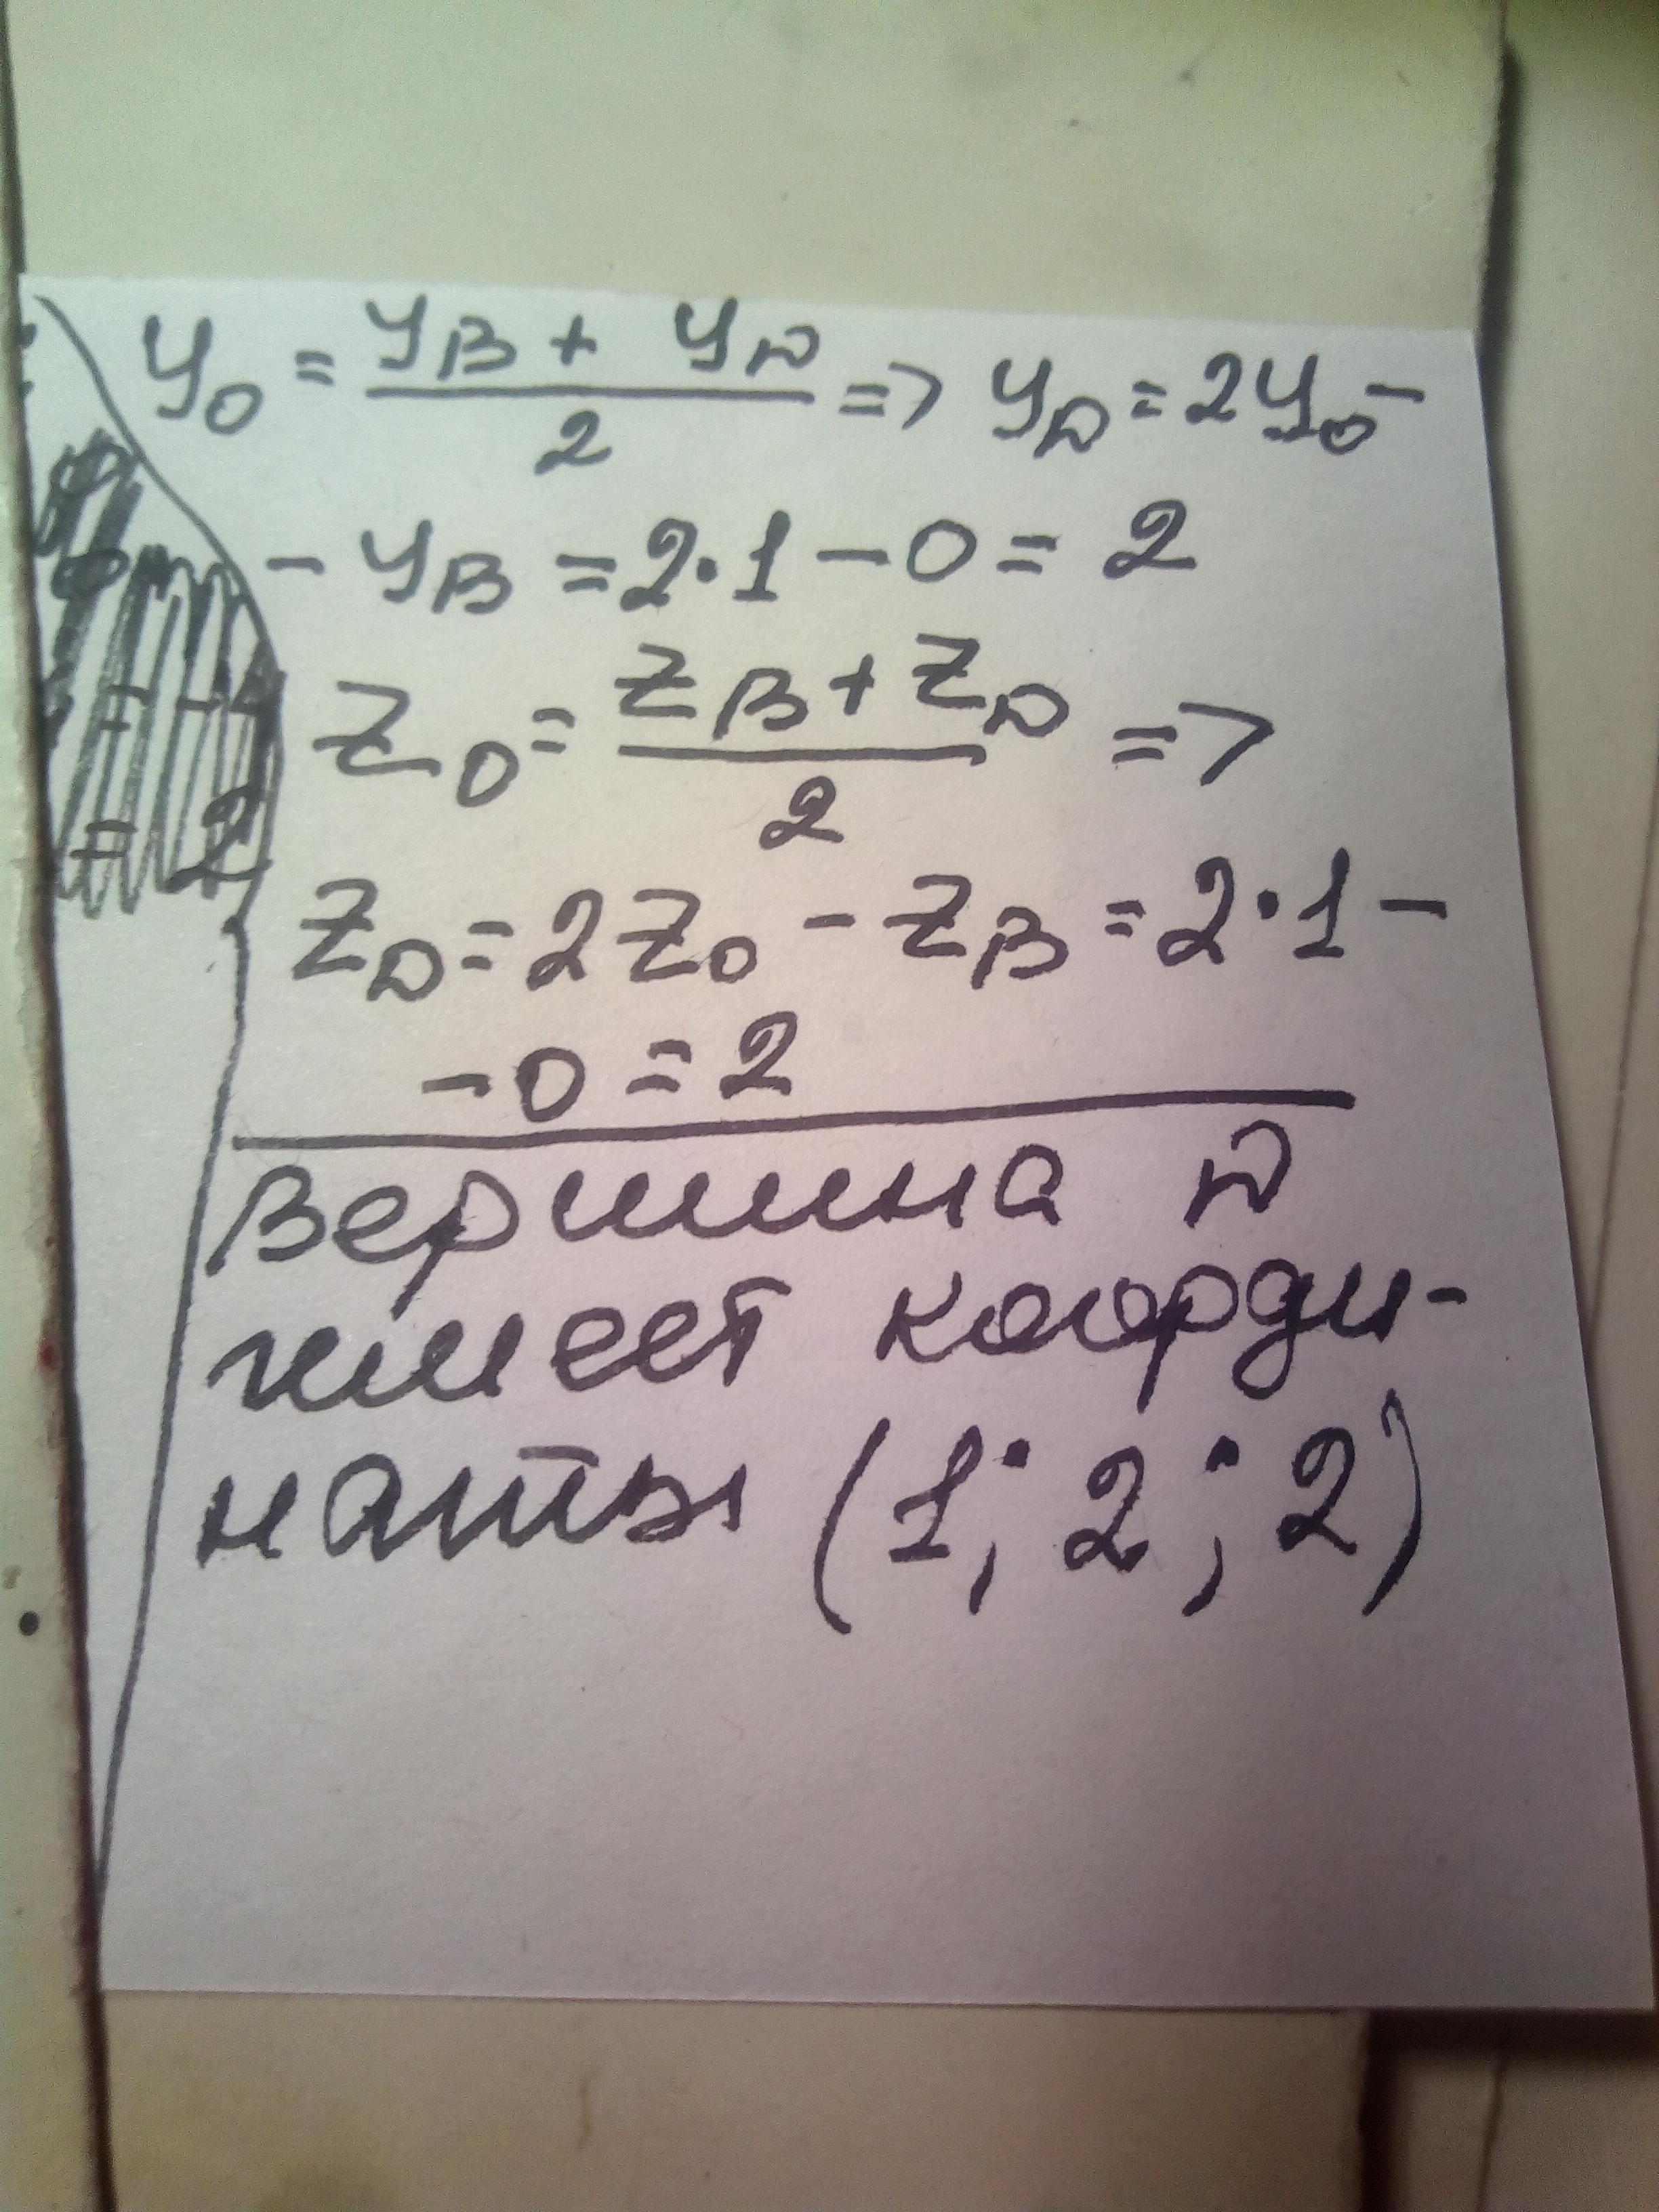 y₀ = (y_B + y_D)/2 => y_D = 2y₀ -
- y_B = 2·1 - 0 = 2
z₀ = (z_B + z_D)/2 =>
z_D = 2z₀ - z_B = 2·1 -
- 0 = 2
Вершина D
имеет коорди-
наты (1; 2; 2)